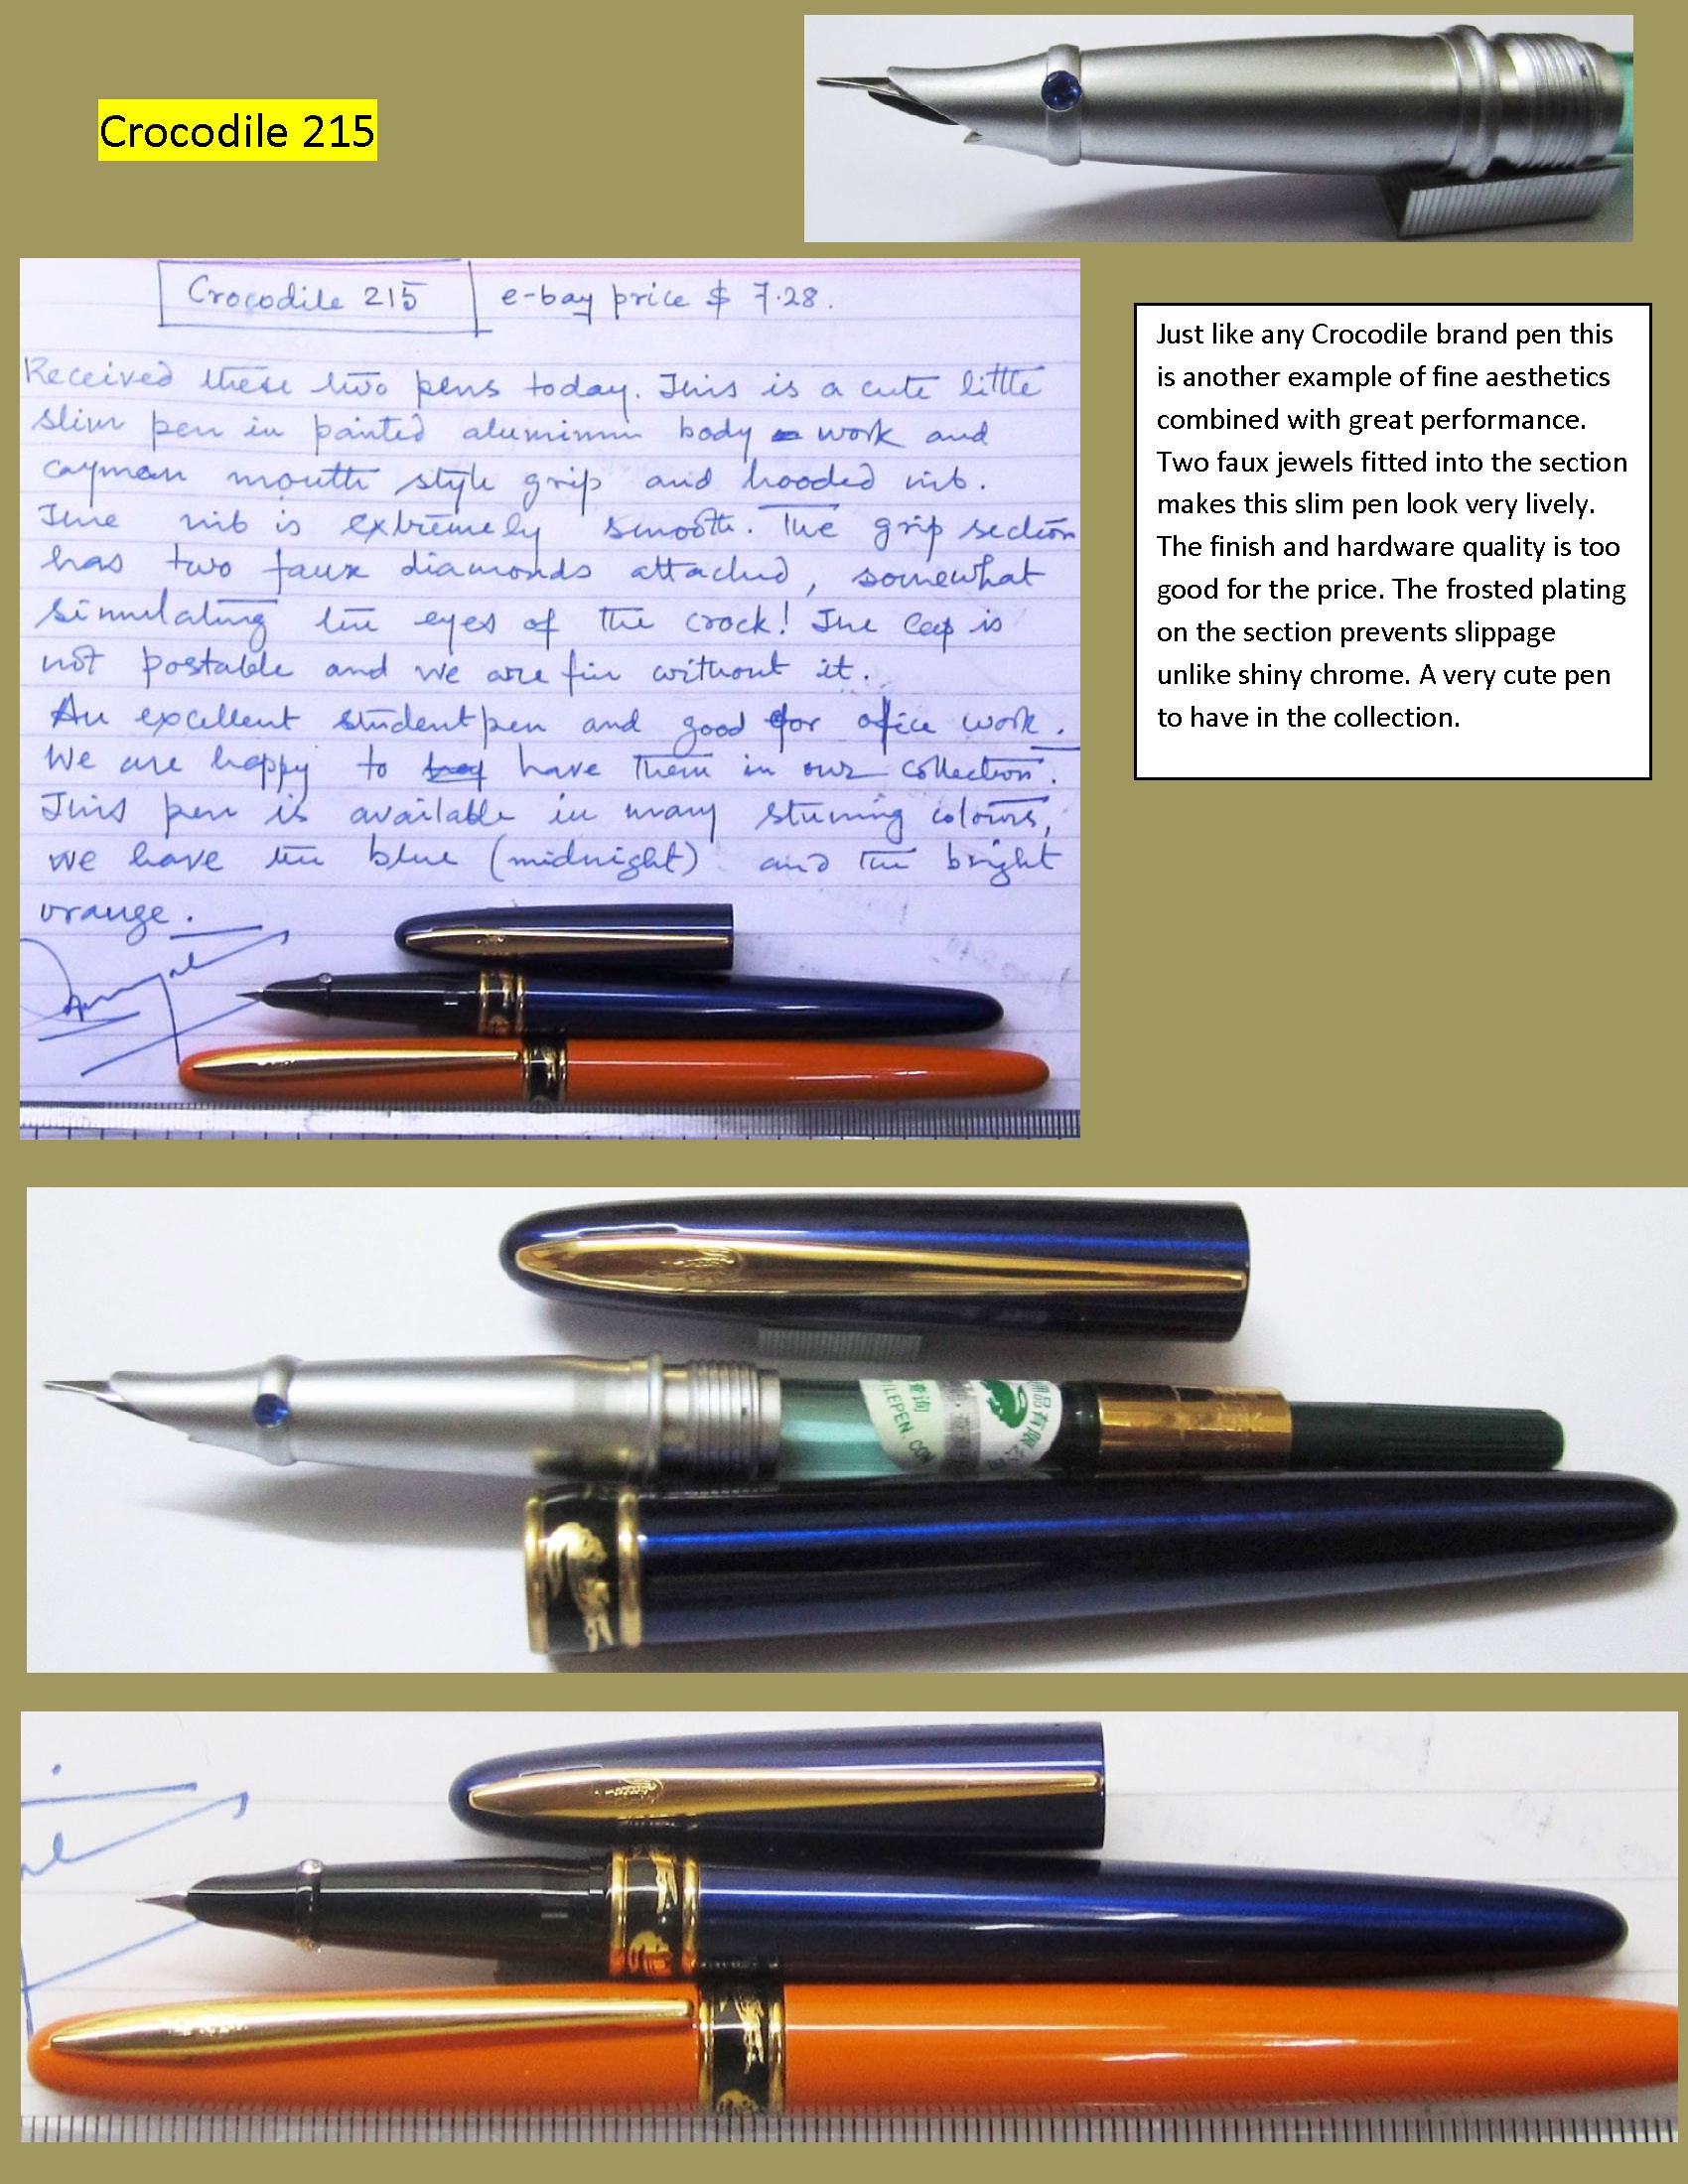 Crocodile 215
Crocodile 215 e-bay price $ 7.28.
Received these two pens today. This is a cute little
slim pen in painted aluminum body work and
cayman mouth style grip and hooded nib.
The nib is extremely smooth. The grip section
has two faux diamonds attached, somewhat
simulating the eyes of the crock! The cap is
not postable and we are fin without it.
An excellent student pen and good for ofice work.
We are happy to have them in our collection.
This pen is available in many stuning colours,
we have the blue (midnight) and the bright
orange.
Just like any Crocodile brand pen this
is another example of fine aesthetics
combined with great performance.
Two faux jewels fitted into the section
makes this slim pen look very lively.
The finish and hardware quality is too
good for the price. The frosted plating
on the section prevents slippage
unlike shiny chrome. A very cute pen
to have in the collection.
查询
ILEPEN.COM
用品有限公司